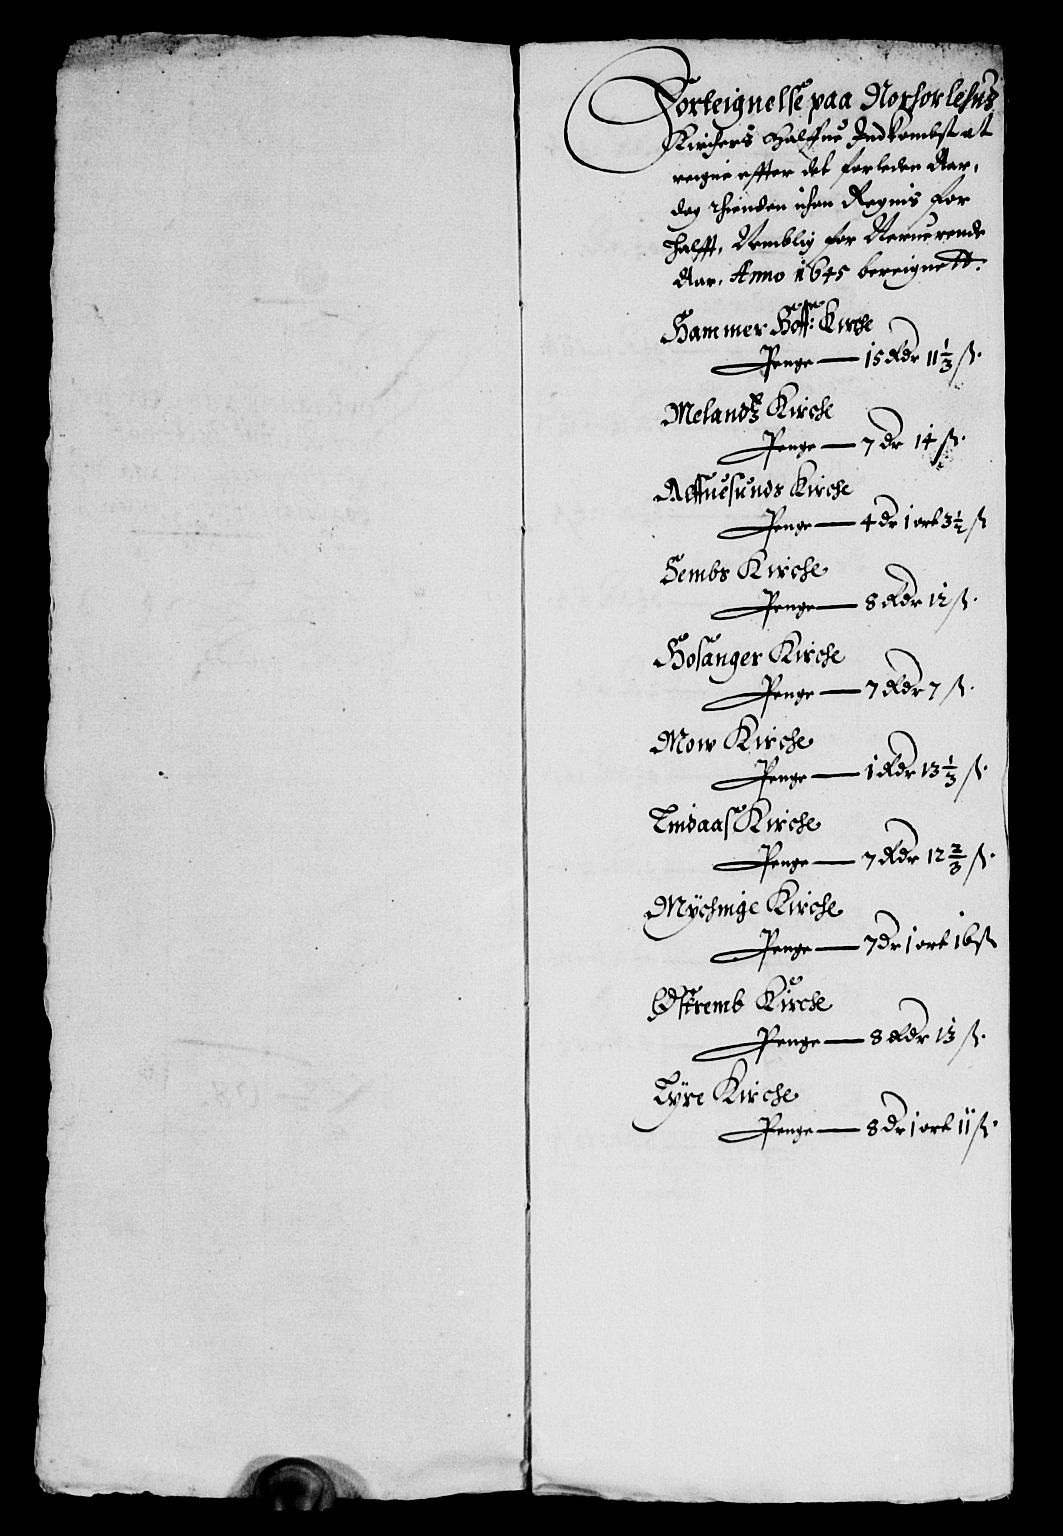 Forteignelse paa Norhorlehns
Kirchers halfue Indkombst at
reigne effter det forleden Aar,
dog thienden ichon Regnis for
halfft, Nemblig for Neruerende
Aar, Anno 1645 bereignett.
Hammer Hoff: Kirche
Penge — 15 Rdr 11 1/3 ß.
Melandz Kirche
Penge — 7 dr 14 ß.
Alffuesunds Kirche
Penge — 4 dr 1 ort 3 1/2 ß
Sembs Kirche
Penge — 8 Rdr 12 ß.
Hosanger Kirche
Penge — 7 Rdr 7 ß.
Mow Kirche
Penge — 1 Rdr 13 1/3 ß.
Lindaas Kirche
Penge — 7 Rdr 12 2/3 ß.
Mychinge Kirche
Penge — 7 dr 1 ort 16 ß
Østremb Kirche
Penge — 8 Rdr 13 ß.
Lyre Kirche
Penge — 8 dr 1 ort 11 ß.